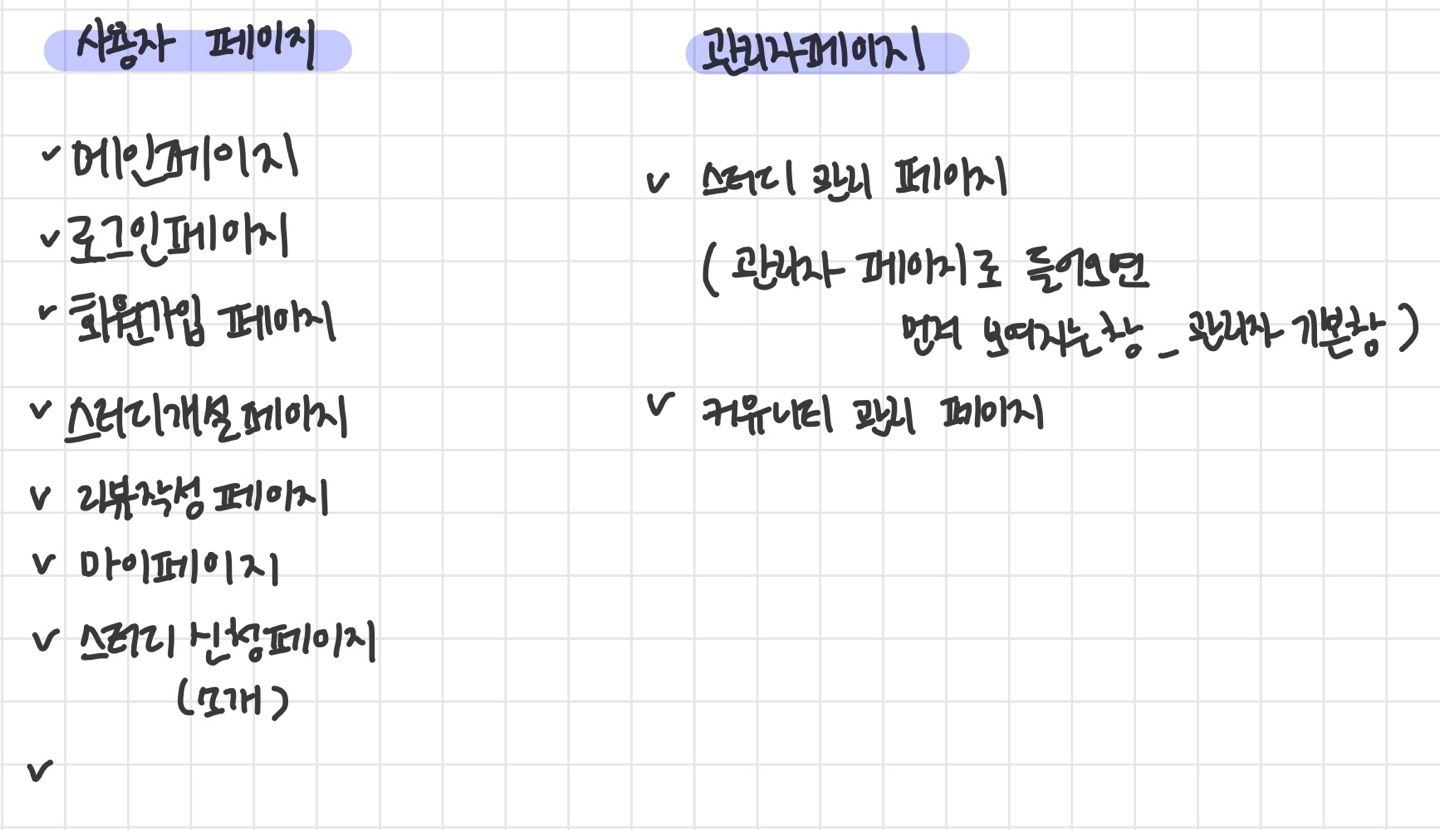 사용자 페이지
✓ 메인페이지
✓ 로그인페이지
✓ 회원가입 페이지
✓ 스터디개설페이지
✓ 리뷰작성 페이지
✓ 마이페이지
✓ 스터디 신청페이지
(소개)
✓
관리자페이지
✓ 스터디 관리 페이지
( 관리자 페이지로 들어오면
먼저 보여지는창 _ 관리자 기본창 )
✓ 커뮤니티 관리 페이지